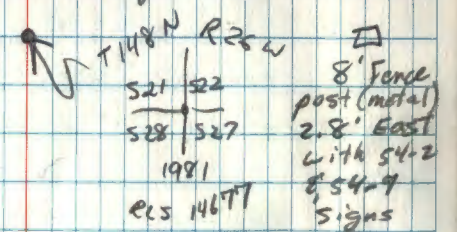 T148N R26W
S21 S22
S28 S27
1981
RLS 14677
8' Fence
post (metal)
2.8' East
with S4-2
& S4-9
signs